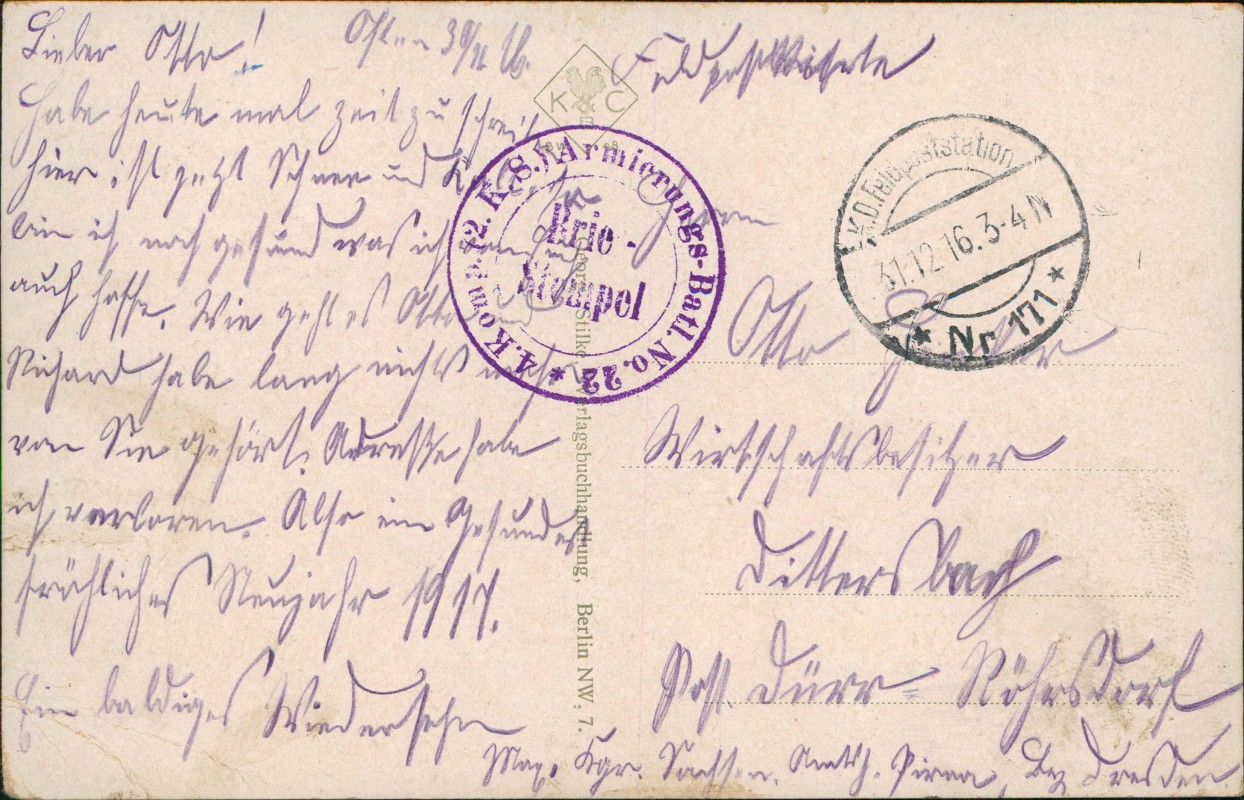 Lieber Otto!
Osten 30/12 16.
Habe heute mal zeit zu schreib
hier ist jetzt Schnee und
bin ich noch gesund was ich von
auch hoffe. Wie geht es Otto und
Richard habe lang nichts mehr
von Sie gehört. Adresse habe
ich verloren. Also ein Gesundes
fröhliches Neujahr 1917.
Ein baldiges Wiedersehn
Max.
Feldpostkarte
K C
4. Komp. 2. K. S. Armierungs-Batl. No. 22
Brie-
Stempel
K.D. Feldpoststation
31.12.16.3-4 N
* Nr 171 *
Georg Stilke Verlagsbuchhandlung, Berlin NW. 7.
Herrn
Otto
Wirtschaftsbesitzer
Dittersbach
Post. Dürr=Röhrsdorf
Kgr. Sachsen. Amth. Pirna, Bez Dresden